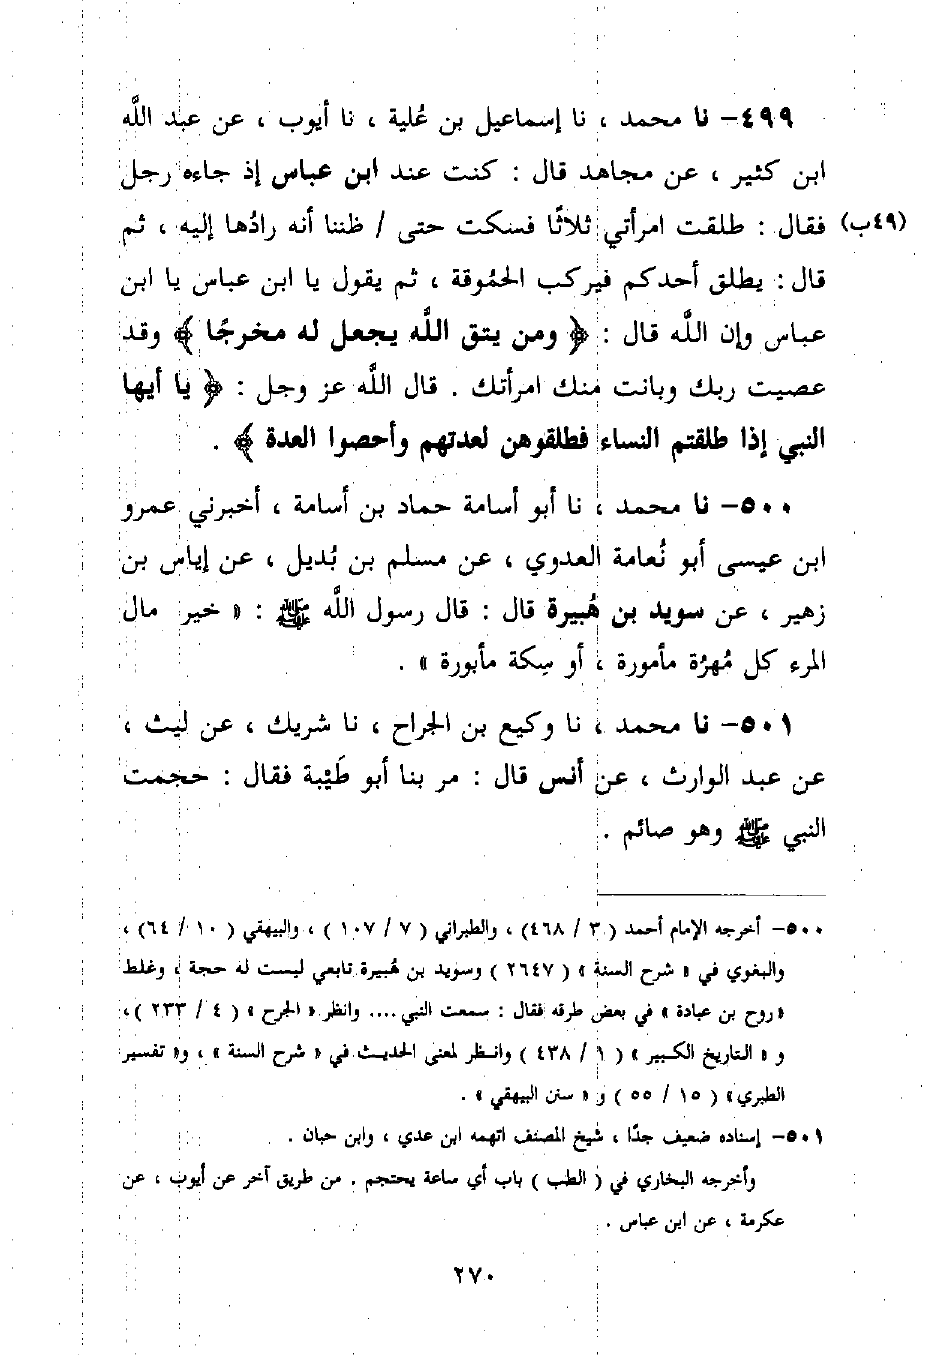 ٤٩٩- نا محمد ، نا إسماعيل بن عُلية ، نا أيوب ، عن عبد الله
ابن كثير ، عن مجاهد قال : كنت عند ابن عباس إذ جاءه رجل
(٤٩ب) فقال : طلقت امرأتي ثلاثًا فسكت حتى / ظننا أنه رادُها إليه ، ثم
قال : يطلق أحدكم فيركب الحمُوقة ، ثم يقول يا ابن عباس يا ابن
عباس وإن الله قال : ﴿ ومن يتق الله يجعل له مخرجًا ﴾ وقد
عصيت ربك وبانت منك امرأتك . قال الله عز وجل : ﴿ يا أيها
النبي إذا طلقتم النساء فطلقوهن لعدتهم وأحصوا العدة ﴾ .
٥٠٠- نا محمد ، نا أبو أسامة حماد بن أسامة ، أخبرني عمرو
ابن عيسى أبو نُعامة العدوي ، عن مسلم بن بُديل ، عن إياس بن
زهير ، عن سويد بن هُبيرة قال : قال رسول الله ﷺ : « خير مال
المرء كل مُهرُة مأمورة ، أو سِكة مأبورة » .
٥٠١- نا محمد ، نا وكيع بن الجراح ، نا شريك ، عن ليث ،
عن عبد الوارث ، عن أنس قال : مر بنا أبو طَيْبة فقال : حجمت
النبي ﷺ وهو صائم .
٥٠٠- أخرجه الإمام أحمد ( ٣ / ٤٦٨) ، والطبراني ( ٧ / ١٠٧ ) ، والبيهقي ( ١٠ / ٦٤) ،
والبغوي في « شرح السنة » ( ٢٦٤٧ ) وسويد بن هُبيرة تابعي ليست له حجة ، وغلط
« روح بن عبادة » في بعض طرقه فقال : سمعت النبي .... وانظر « الجرح » ( ٤ / ٢٣٣ ) ،
و « التاريخ الكبير » ( ١ / ٤٣٨ ) وانظر لمعنى الحديث في « شرح السنة » ، و« تفسير
الطبري » ( ١٥ / ٥٥ ) و « سنن البيهقي » .
٥٠١- إسناده ضعيف جدًا ، شيخ المصنف اتهمه ابن عدي ، وابن حبان .
وأخرجه البخاري في ( الطب ) باب أي ساعة يحتجم . من طريق آخر عن أيوب ، عن
عكرمة ، عن ابن عباس .
٢٧٠